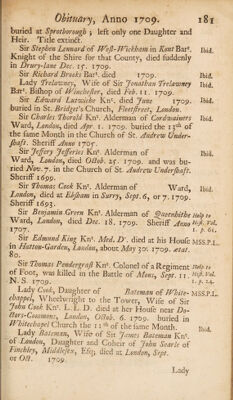 Obituary, Anno 1709. 181
buried at Sprotborough ; left only one Daughter and
Heir. Title extinct.
Sir Stephen Lennard of West-Wickham in Kent Bart. Ibid.
Knight of the Shire for that County, died suddenly
in Drury-lane Dec. 15. 1709.
Sir Richard Brooks Bart. died 1709. Ibid.
Lady Trelawney, Wife of Sir Jonathan Trelawney Ibid.
Bart. Bishop of Winchester, died Feb. 11. 1709.
Sir Edward Lutwiche Knt. died June 1709. Ibid.
buried in St. Bridget's Church, Fleetstreet, London.
Sir Charles Thorold Knt. Alderman of Cordwainers Ibid.
Ward, London, died Apr. 1. 1709. buried the 15th of
the same Month in the Church of St. Andrew Under-
shaft. Sheriff Anno 1705.
Sir Jeffery Jefferies Knt. Alderman of Ibid.
Ward, London, died Octob. 25. 1709. and was bu-
ried Nov. 7. in the Church of St. Andrew Undershaft.
Sheriff 1699.
Sir Thomas Cook Knt. Alderman of Ward, Ibid.
London, died at Ebsham in Surry, Sept. 6, or 7. 1709.
Sheriff 1693.
Sir Benjamin Green Knt. Alderman of Queenhithe Help to
Ward, London, died Dec. 18. 1709. Sheriff Anno Hist. Vol.
1707. 1. p. 61.
Sir Edmund King Knt. Med. Dr. died at his House MSS.P.L.
in Hatton-Garden, London, about May 30. 1709. ætat.
80.
Sir Thomas Pendergrass Knt. Colonel of a Regiment Help to
of Foot, was killed in the Battle of Mons, Sept. 11. Hist. Vol.
N. S. 1709. 1. p. 24.
Lady Cook, Daughter of Bateman of White- MSS.P.L.
chappel, Wheelwright to the Tower, Wife of Sir
John Cook Knt. L. L. D. died at her House near Do-
ctors-Commons, London, Octob. 6. 1709. buried in
Whitechapel Church the 11th of the same Month.
Lady Bateman, Wife of Sir James Bateman Knt. Ibid.
of London, Daughter and Coheir of John Searle of
Finchley, Middlesex, Esq; died at London, Sept.
or Oct. 1709.
Lady